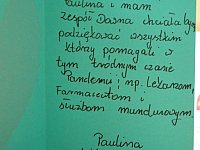 Paulina i mam
zespół Downa chciałabym
podziękować wszystkim
którzy pomagali w
tym trudnym czasie
Pandemii, np. Lekarzom,
Farmaceutom i
służbom mundurowym.
Paulina